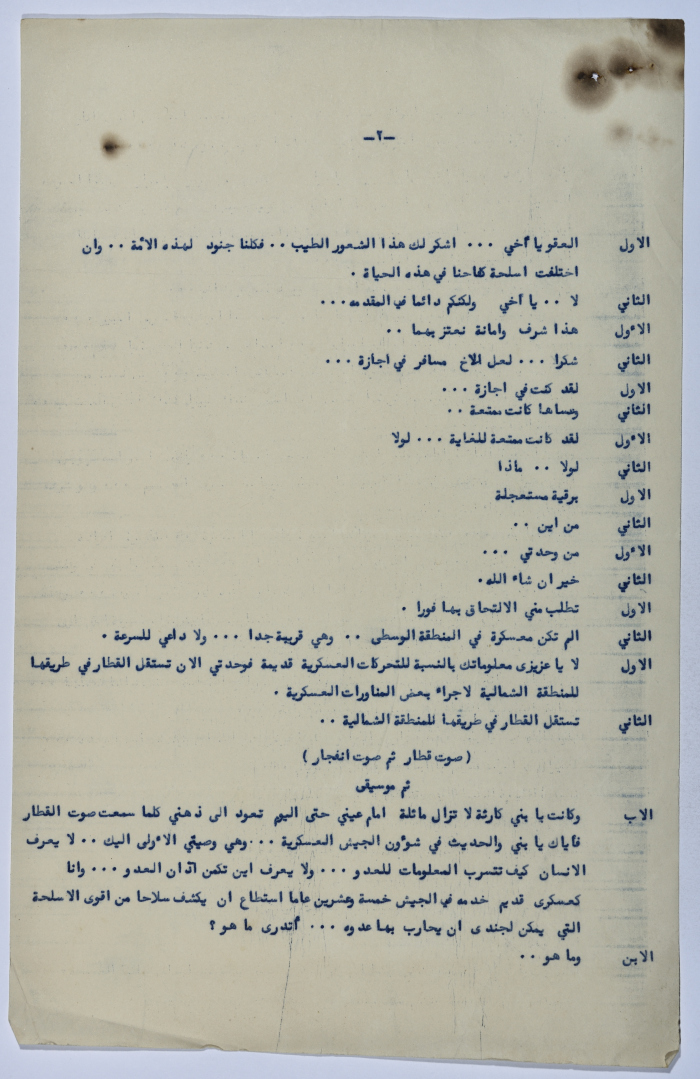 -٢-
الاول العفو يا أخي ... اشكر لك هذا الشعور الطيب .. فكلنا جنود لهذه الامة .. وان
اختلفت اسلحة كفاحنا في هذه الحياة .
الثاني لا .. يا أخي ولكنكم دائما في المقدمه ...
الاول هذا شرف وامانة نعتز بهما ..
الثاني شكرا ... لعل الاخ مسافر في اجازة ...
الاول لقد كنت في اجازة ...
الثاني وعساها كانت ممتعة ..
الاول لقد كانت ممتعة للغاية ... لولا
الثاني لولا .. ماذا
الاول برقية مستعجلة
الثاني من اين ..
الاول من وحدتي ...
الثاني خير ان شاء الله .
الاول تطلب مني الالتحاق بها فورا .
الثاني الم تكن معسكرة في المنطقة الوسطى .. وهي قريبة جدا ... ولا داعي للسرعة .
الاول لا يا عزيزى معلوماتك بالنسبة للتحركات العسكرية قديمة فوحدتي الان تستقل القطار في طريقها
للمنطقة الشمالية لاجراء بعض المناورات العسكرية .
الثاني تستقل القطار في طريقها للمنطقة الشمالية ..
( صوت قطار ثم صوت انفجار )
ثم موسيقى
الاب وكانت يا بني كارثة لا تزال ماثلة امام عيني حتى اليوم تعود الى ذهني كلما سمعت صوت القطار
فأياك يا بني والحديث في شوؤن الجيش العسكرية ... وهي وصيتي الاولى اليك .. لا يعرف
الانسان كيف تتسرب المعلومات للعدو ... ولا يعرف اين تكمن اذان العدو ... وانا
كعسكرى قديم خدمه في الجيش خمسة وعشرين عاما استطاع ان يكشف سلاحا من اقوى الاسلحة
التي يمكن لجندى ان يحارب بها عدوه ... أتدرى ما هو ؟
الابن وما هو ..